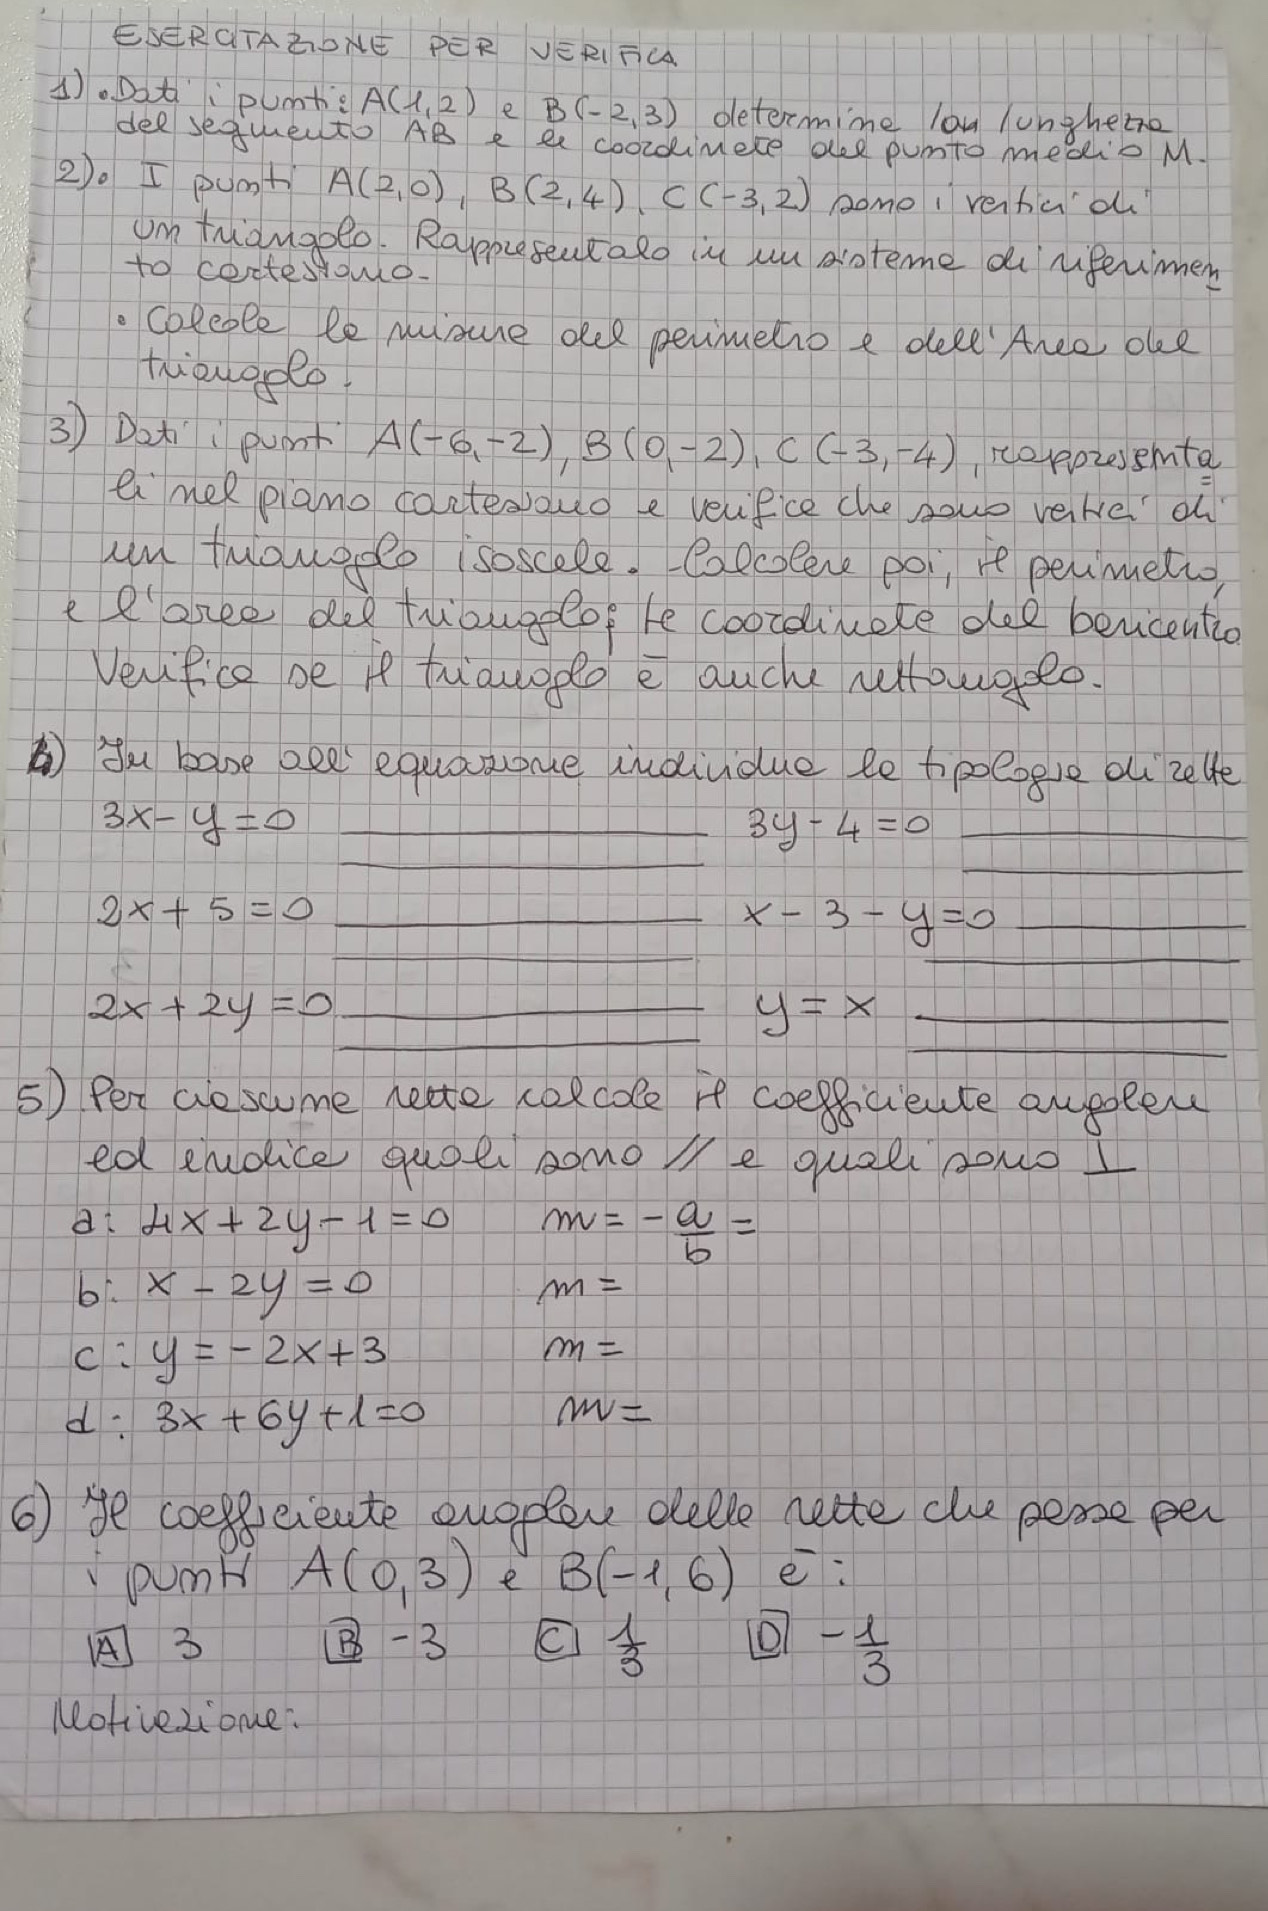 ESERCITAZIONE PER VERIFICA
1) • Dati i punti: A(1,2) e B(-2,3) determina la lunghezza
del segmento AB e le coordinate del punto medio M.
2) • I punti A(2,0), B(2,4), C(-3,2) sono i vertici di
un triangolo. Rappresentalo in un sistema di riferimen
to cartesiano.
• Calcola la misura del perimetro e dell'Area del
triangolo.
3) Dati i punti A(-6,-2), B(0,-2), C(-3,-4), rappresenta
li nel piano cartesiano e verifica che sono vertici di
un triangolo isoscele. Calcolare poi, il perimetro,
e l'area del triangolo; le coordinate del baricentro
Verifica se il triangolo è anche rettangolo.
4) In base all'equazione individua la tipologia di rette
3x - y = 0 3y - 4 = 0
2x + 5 = 0 x - 3 - y = 0
2x + 2y = 0 y = x
5) Per ciascuna retta calcola il coefficiente angolare
ed indica quali sono // e quali sono ⊥
a: 4x + 2y - 1 = 0 m = - a/b =
b: x - 2y = 0 m =
c: y = -2x + 3 m =
d: 3x + 6y + 1 = 0 m =
6) Il coefficiente angolare della retta che passa per
i punti A(0,3) e B(-1,6) è:
A 3 B -3 C 1/3 D -1/3
Motivazione: